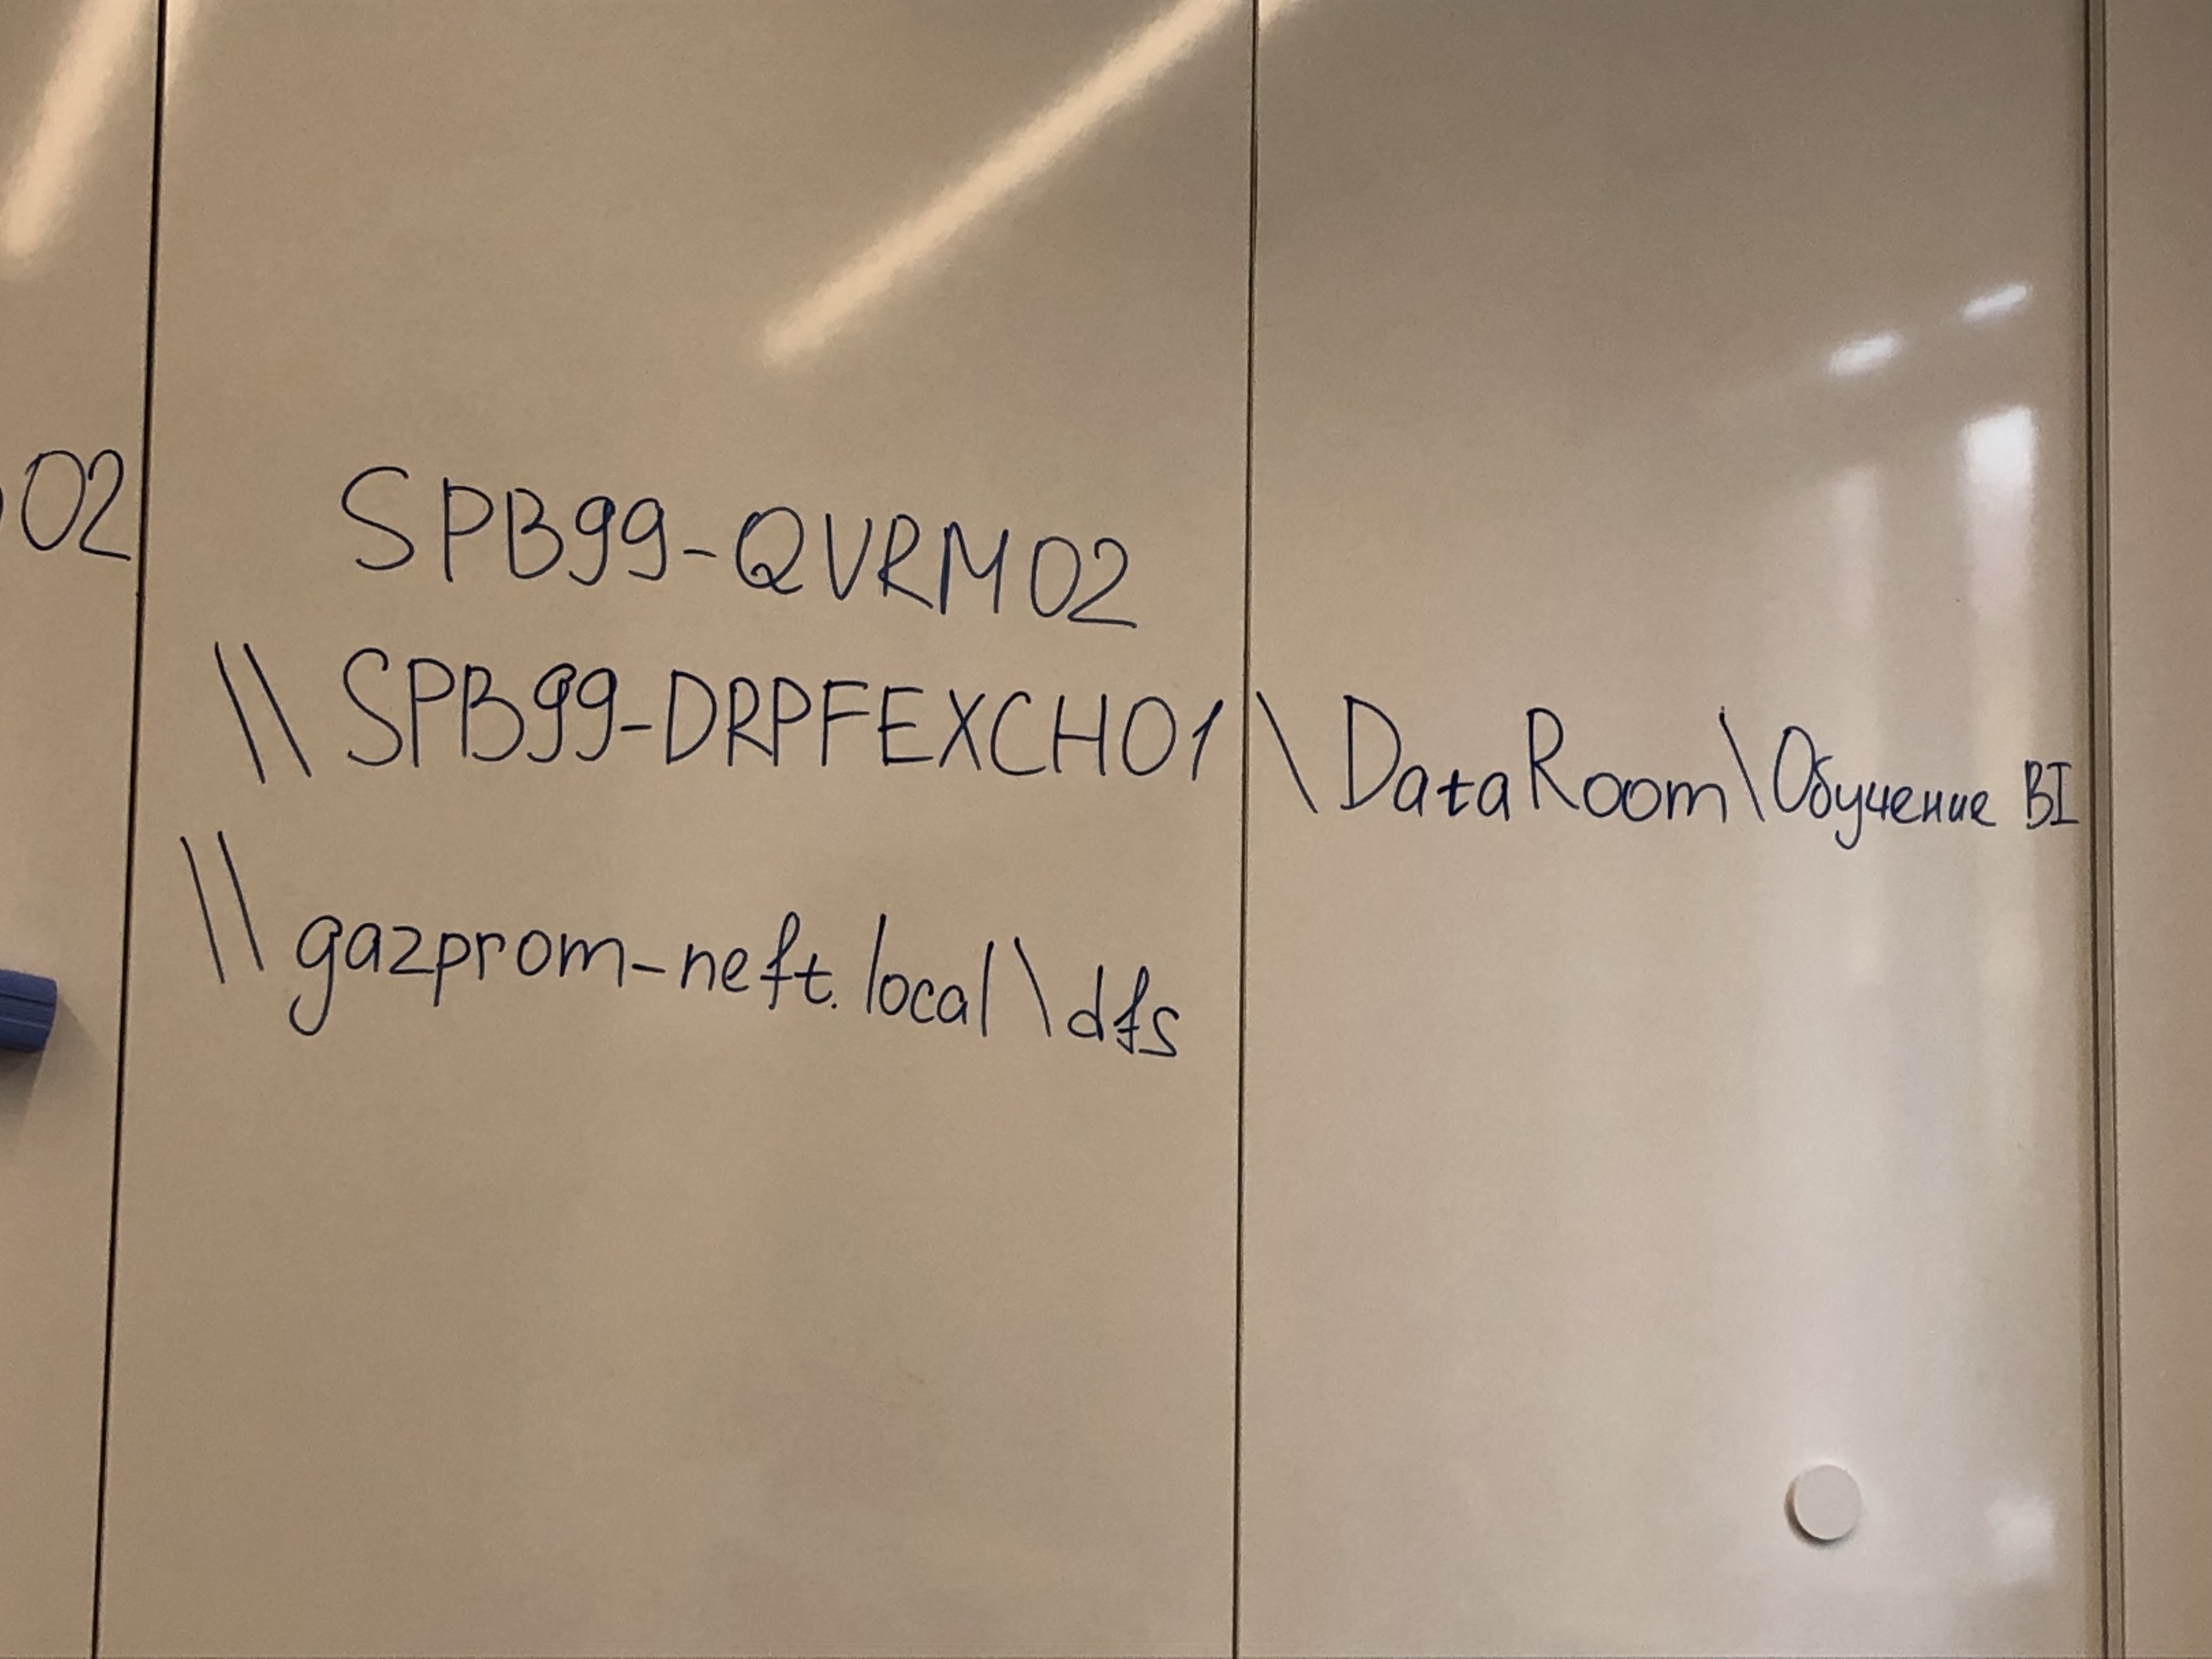 02
SPB99-QVRM02
\\SPB99-DRPFEXCH01\DataRoom\Обучение BI
\\gazprom-neft.local\dfs